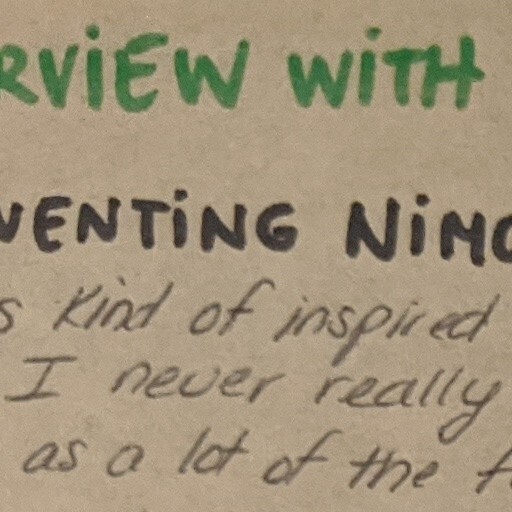 RViEW WiTH
VENTiNG NiMO
s kind of inspired
I never really
as a lot of the f